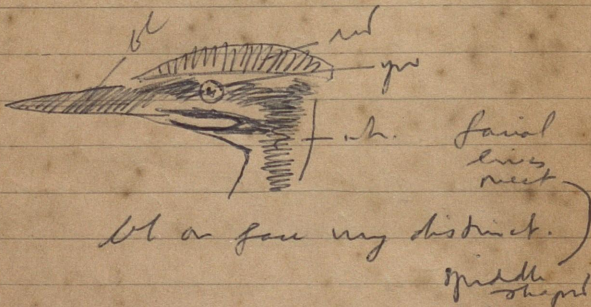 bl
red
facial
lines
meet
bl on face very distinct.
spindle
shaped